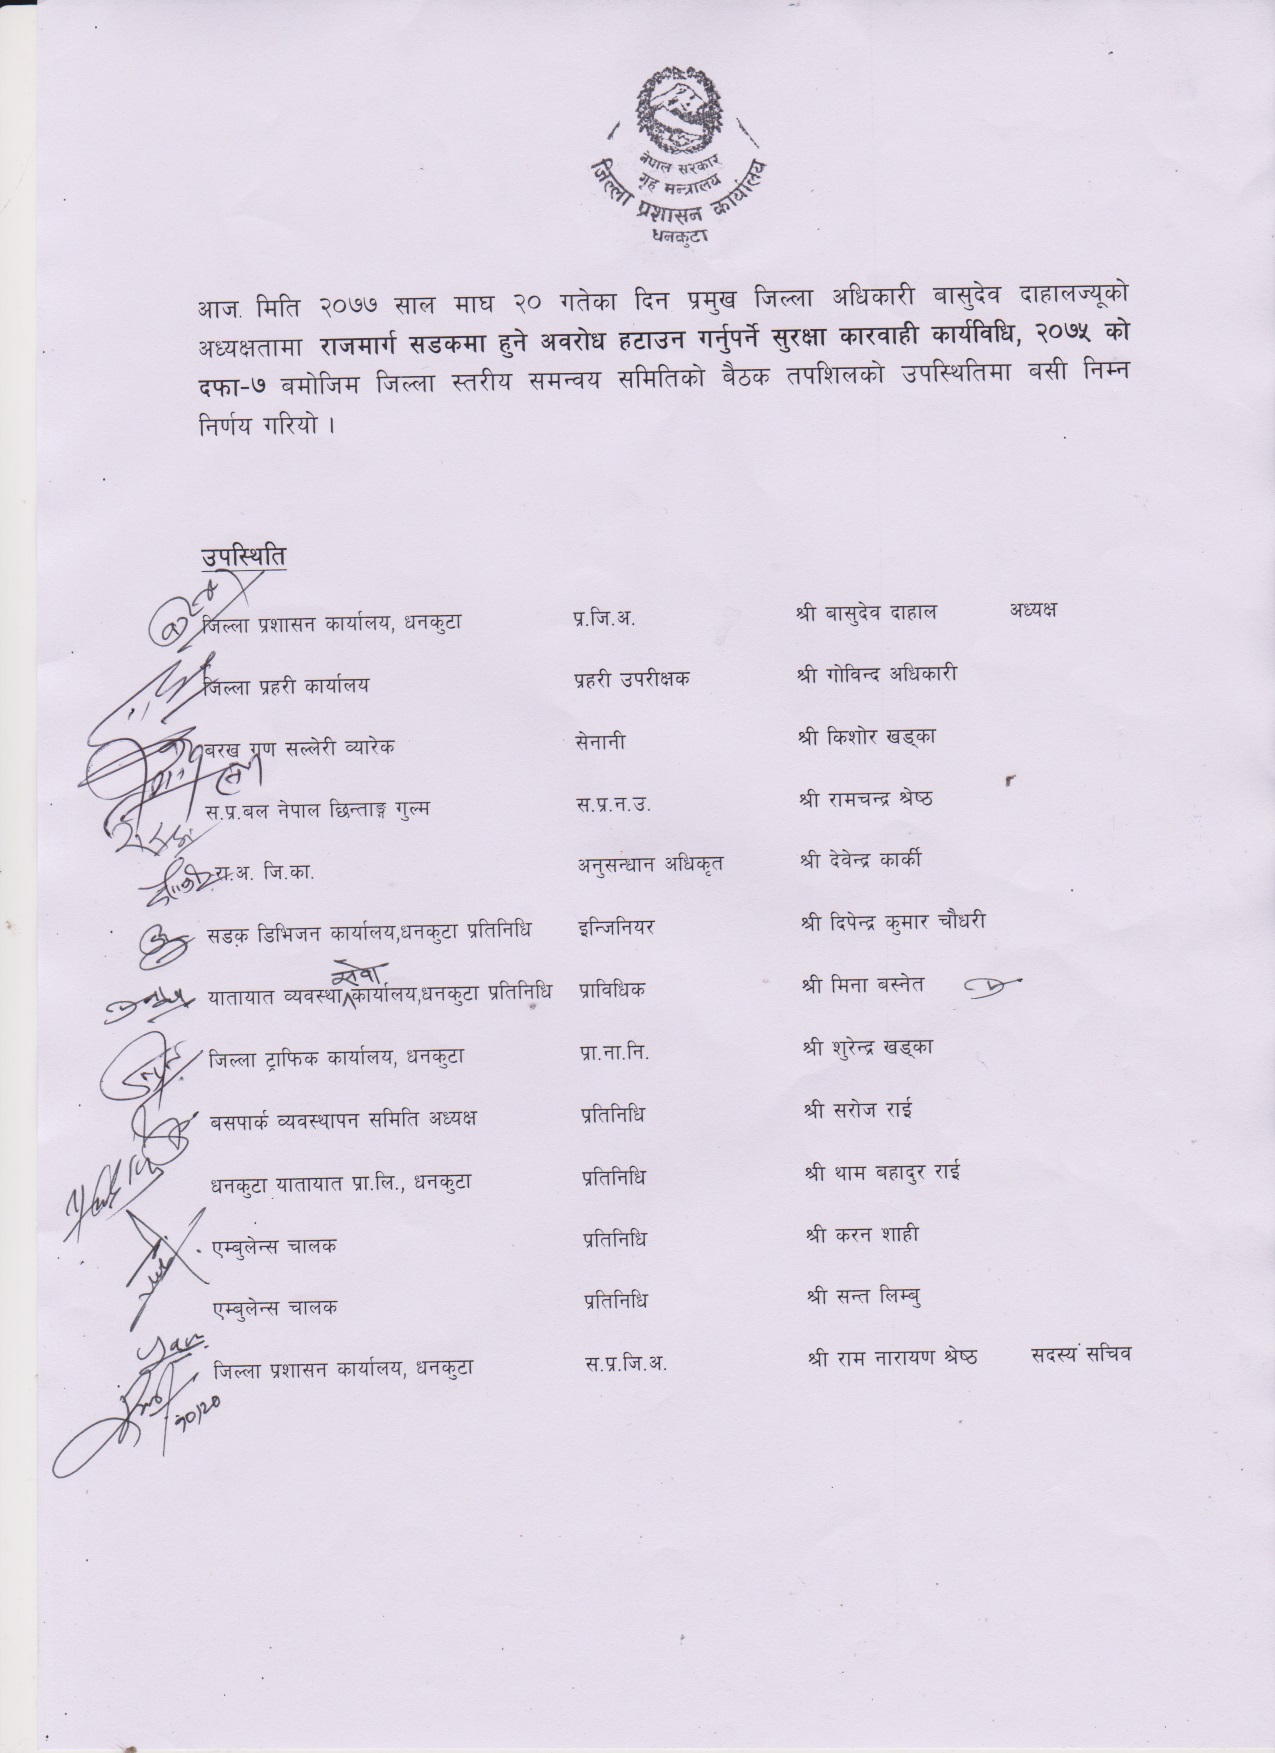 नेपाल सरकार
गृह मन्त्रालय
जिल्ला प्रशासन कार्यालय
धनकुटा
आज. मिति २०७७ साल माघ २० गतेका दिन प्रमुख जिल्ला अधिकारी बासुदेव दाहालज्यूको
अध्यक्षतामा राजमार्ग सडकमा हुने अवरोध हटाउन गर्नुपर्ने सुरक्षा कारवाही कार्यविधि, २०७५ को
दफा-७ बमोजिम जिल्ला स्तरीय समन्वय समितिको बैठक तपशिलको उपस्थितिमा बसी निम्न
निर्णय गरियो ।
उपस्थिति
जिल्ला प्रशासन कार्यालय, धनकुटा प्र.जि.अ. श्री बासुदेव दाहाल अध्यक्ष
जिल्ला प्रहरी कार्यालय प्रहरी उपरीक्षक श्री गोविन्द अधिकारी
बरख गण सल्लेरी व्यारेक सेनानी श्री किशोर खड्का
स.प्र.बल नेपाल छिन्ताङ्ग गुल्म स.प्र.न.उ. श्री रामचन्द्र श्रेष्ठ
रा.अ. जि.का. अनुसन्धान अधिकृत श्री देवेन्द्र कार्की
सडक डिभिजन कार्यालय,धनकुटा प्रतिनिधि इन्जिनियर श्री दिपेन्द्र कुमार चौधरी
यातायात व्यवस्था सेवा कार्यालय,धनकुटा प्रतिनिधि प्राविधिक श्री मिना बस्नेत
जिल्ला ट्राफिक कार्यालय, धनकुटा प्रा.ना.नि. श्री शुरेन्द्र खड्का
बसपार्क व्यवस्थापन समिति अध्यक्ष प्रतिनिधि श्री सरोज राई
धनकुटा यातायात प्रा.लि., धनकुटा प्रतिनिधि श्री थाम बहादुर राई
एम्बुलेन्स चालक प्रतिनिधि श्री करन शाही
एम्बुलेन्स चालक प्रतिनिधि श्री सन्त लिम्बु
जिल्ला प्रशासन कार्यालय, धनकुटा स.प्र.जि.अ. श्री राम नारायण श्रेष्ठ सदस्य सचिव
१०/२०